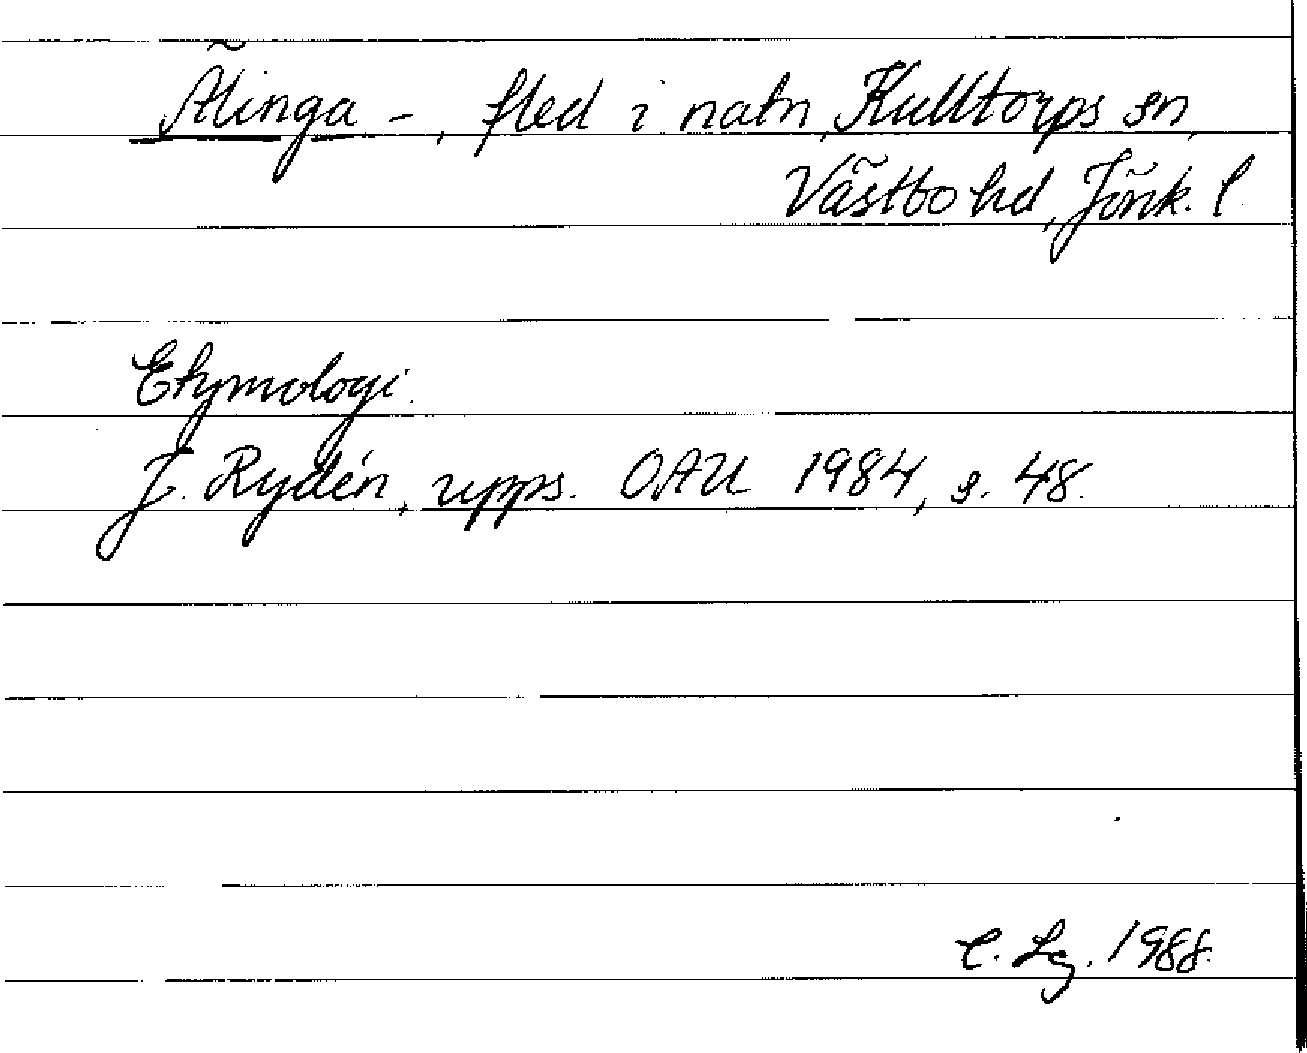 Älinga -, fled i natn, Kulltorps sn,
Västbo hd, Jönk. l
Etymologi.
J. Rydén, upps. OAU 1984, s. 48.
C. Lg. 1988.